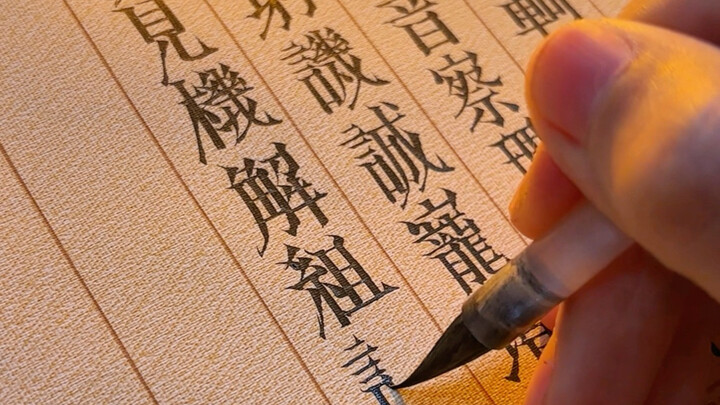 音察
譏誡寵
見機解組